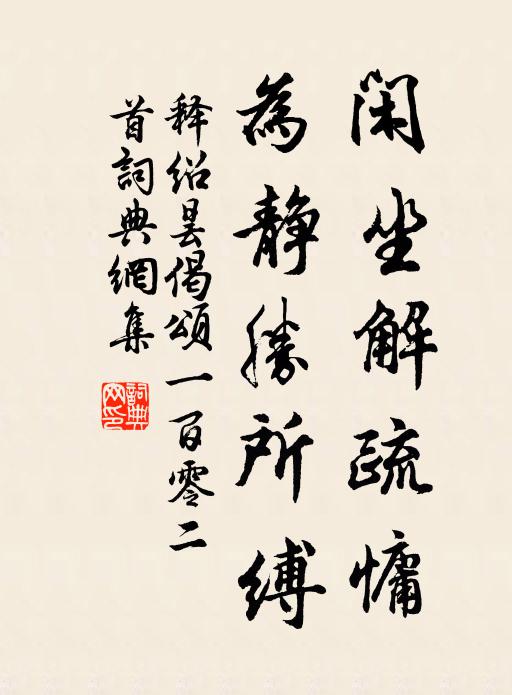 闲坐解疏慵
為静勝所缚
释绍昙偈颂一百零二
首詞典網集
詞典網印